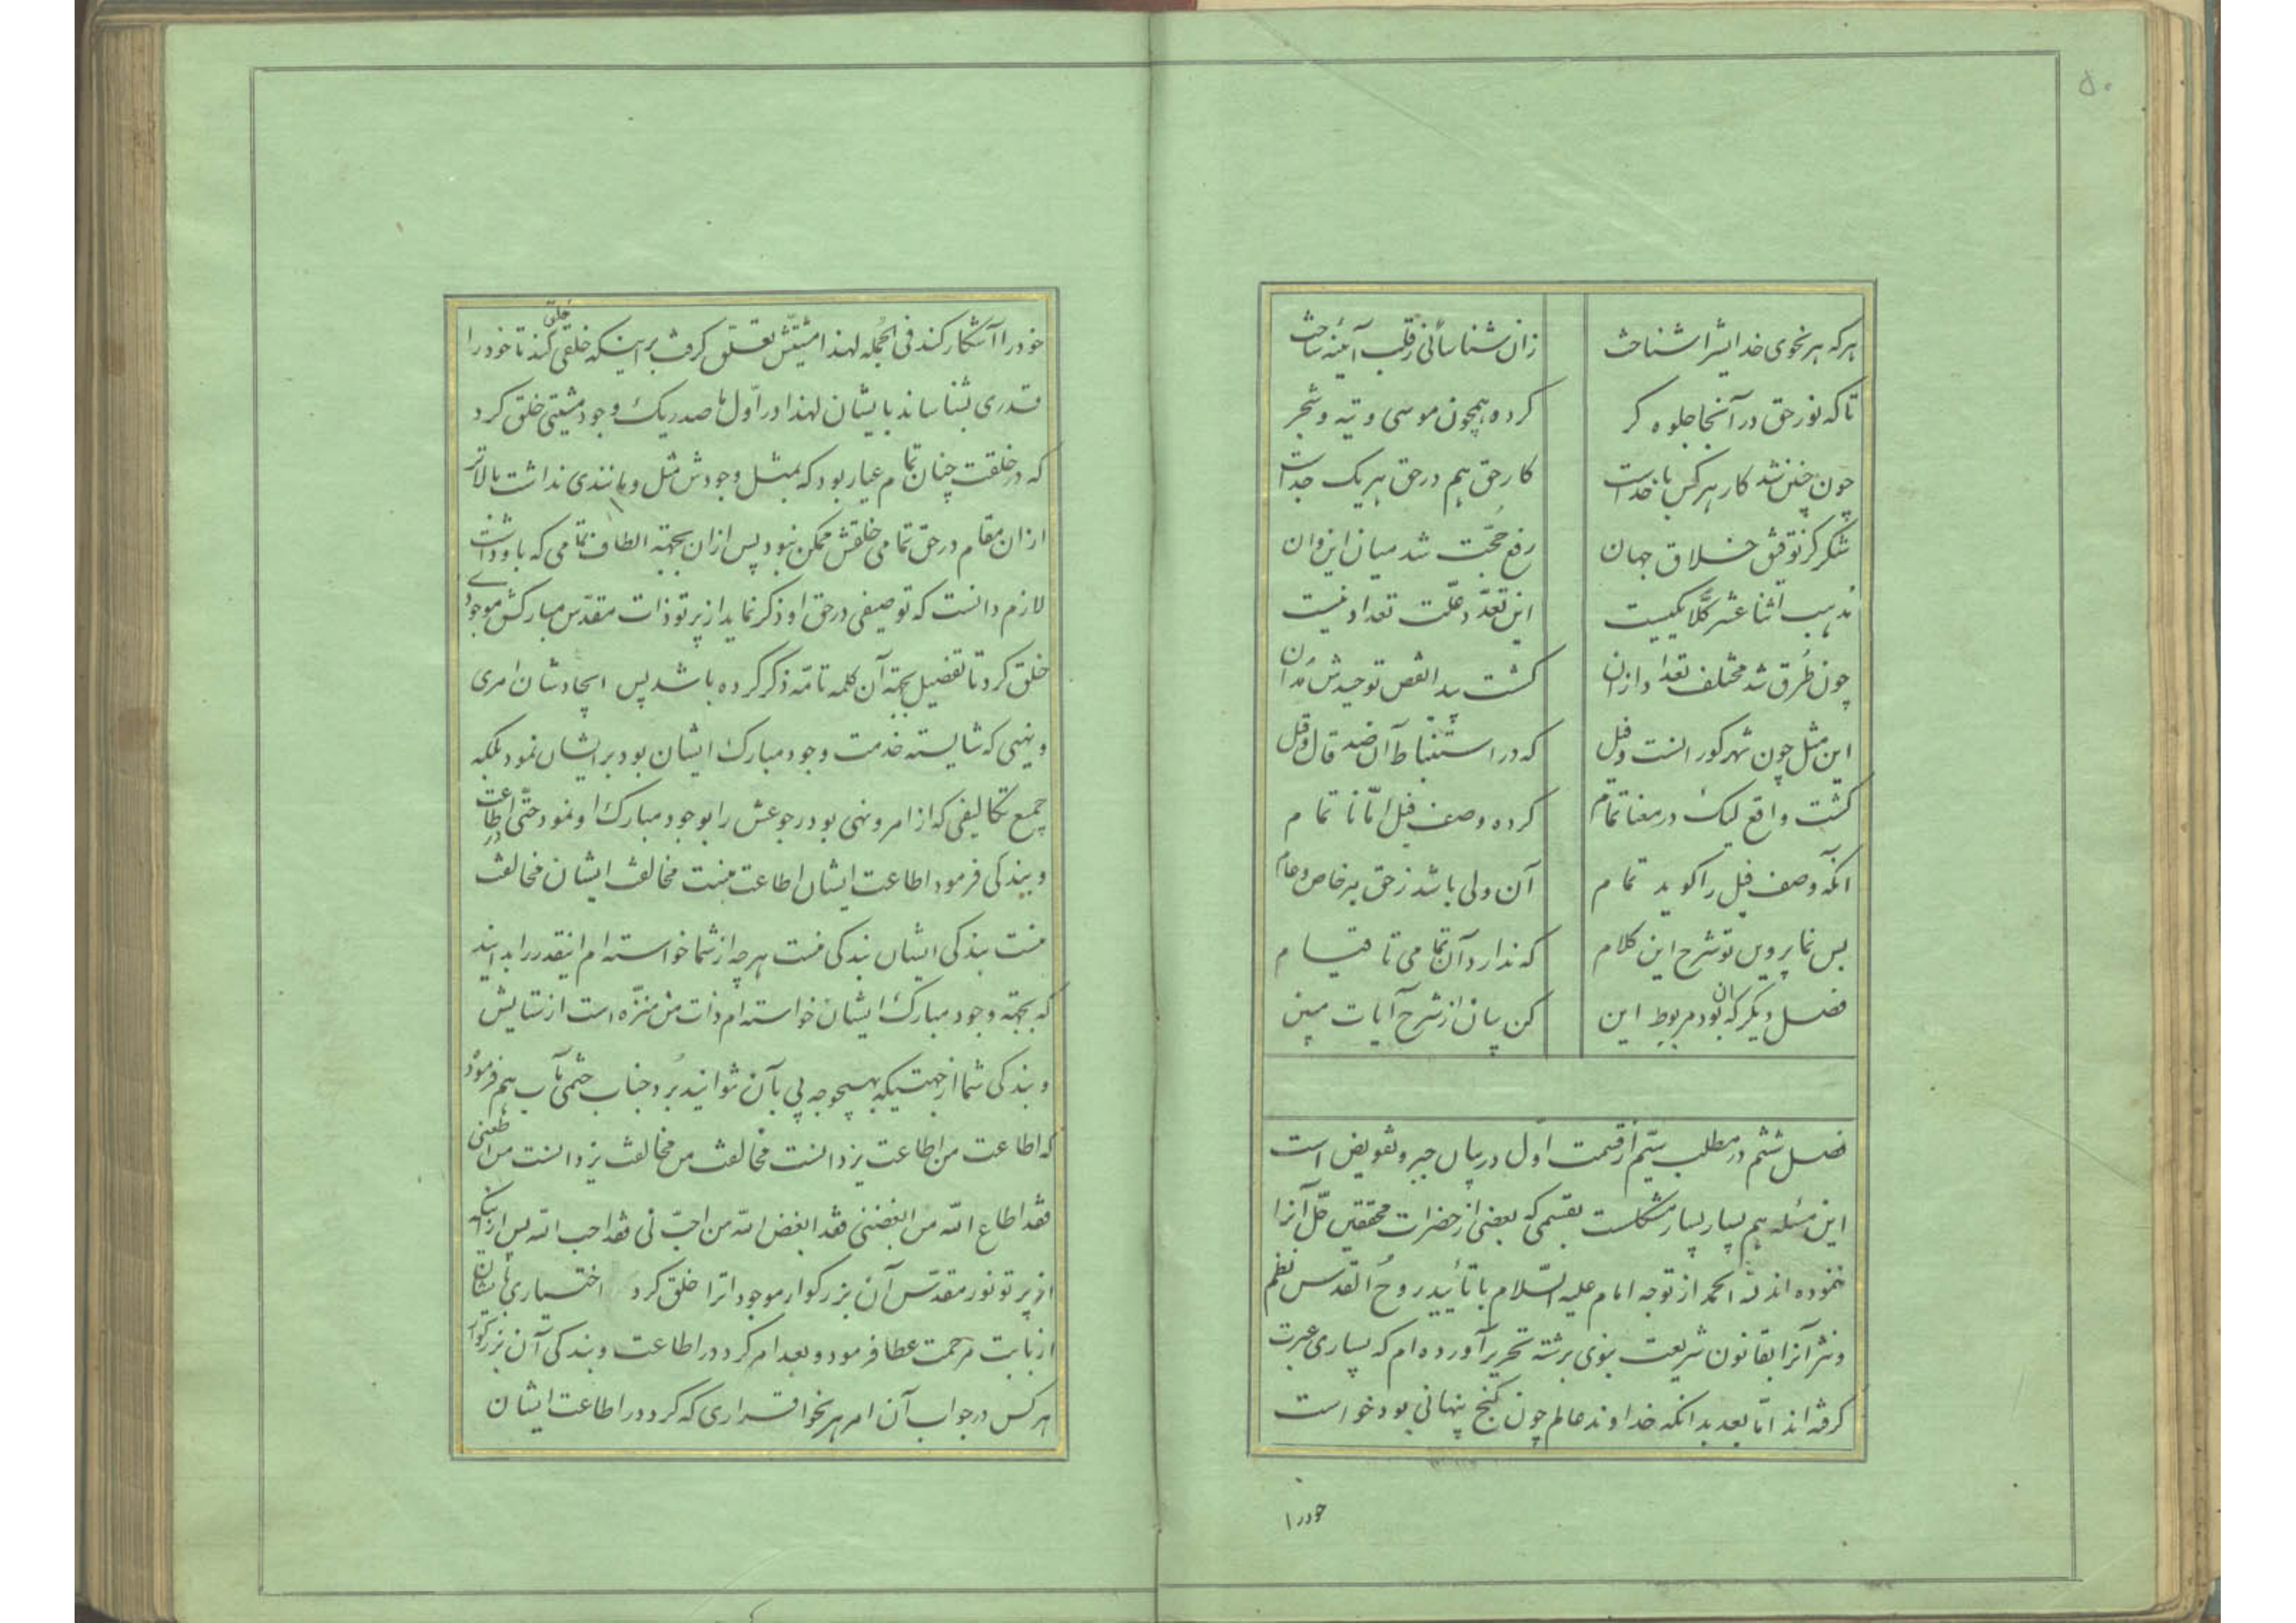 ۵۰
هرکه هر نحوی خدایش را شناخت زان شناسائی ز قلب آئینه ساخت
تا که نور حق در آنجا جلوه کر کرده همچون موسی و تیه و شجر
چون چنین شد کار هرکس با خداست کار حق هم در حق هریک جداست
شکر کز توفیق خلاق جهان رفع حجّت شد میان این و آن
مذهب اثنا عشر کلّا یکیست این تعدّد علّت تعداد نیست
چون طُرق شد مختلف تعداد از آن کشت پیدا نقص توحیدش بدان
این مثل چون شهر کورانست و فیل که در استنباط آن ضد قال و قیل
کشت واقع لیک در معنا تمام کرده وصف فیل امّا نا تمام
آنکه وصف فیل را کوید تمام آن ولی باشد ز حق بر خاص و عام
بس نما پروین تو شرح این کلام که ندارد آن تمامی تا قیام
فصل دیکر که آن بود مربوط این کن بیان از شرح آیات مبین
فصل ششم در مطلب سیّم از قسمت اوّل در بیان جبر و تفویض است
این مسئله هم بسیار بسیار مشکلست بقسمی که بعضی از حضرات محققین حلّ آنرا
ننموده اند لله الحمد از توجه امام علیه السّلام با تأیید روح القدس نظم
و نثر آنرا بقانون شریعت نبوی برشته تحریر آورده ام که بسیاری عبرت
کرفته اند امّا بعد بدانکه خداوند عالم چون کنج پنهانی بود خواست
خودرا
خودرا آشکار کند فی الجمله لهذا مشیّتش تعلّق کرفت بر اینکه خلقی خلق کند تا خودرا
قدری بشناساند بایشان لهذا در اوّل ما صدر یک وجود مشیتی خلق کرد
که در خلقت چنان تمام عیار بود که بمثل وجودش مثل و مانندی نداشت بالاتر
از ان مقام در حق تمامی خلقش ممکن نبود پس از ان بجهة الطاف تمامی که باو داشت
لازم دانست که توصیفی در حق او ذکر نماید از پرتو ذات مقدّس مبارکش موجودی
خلق کرد تا تفضیل بجهة آن کلمه تامّه ذکر کرده باشد پس ایجادشان امری
و نهیی که شایسته خدمت وجود مبارک ایشان بود بر ایشان نمود بلکه
جمیع تکالیفی که از امر و نهی بود رجوعش را بوجود مبارک او نمود حتّی در اطاعت
و بندکی فرمود اطاعت ایشان اطاعت منست مخالفت ایشان مخالفت
منست بندکی ایشان بندکی منست هرچه از شما خواسته ام اینقدر را بدانید
که بجهة وجود مبارک ایشان خواسته ام ذات من منزّه است از ستایش
و بندکی شما از جهتیکه بهیچوجه پی بآن نتوانید بُرد جناب ختمی مآب هم فرمود
که اطاعت من اطاعت یزدانست مخالفت من مخالفت یزدانست من اطعنی
فقد اطاع الله من ابغضنی فقد ابغض الله من احبّ نی فقد احب الله پس از اینکه
از پرتو نور مقدّس آن بزرکوار موجوداترا خلق کرد اختیاری بایشان
از بابت مرحمت عطا فرمود و بعد امر کرد در اطاعت و بندکی آن بزرکوار
هرکس در جواب آن امر هر نحو اقراری که کرد در اطاعت ایشان